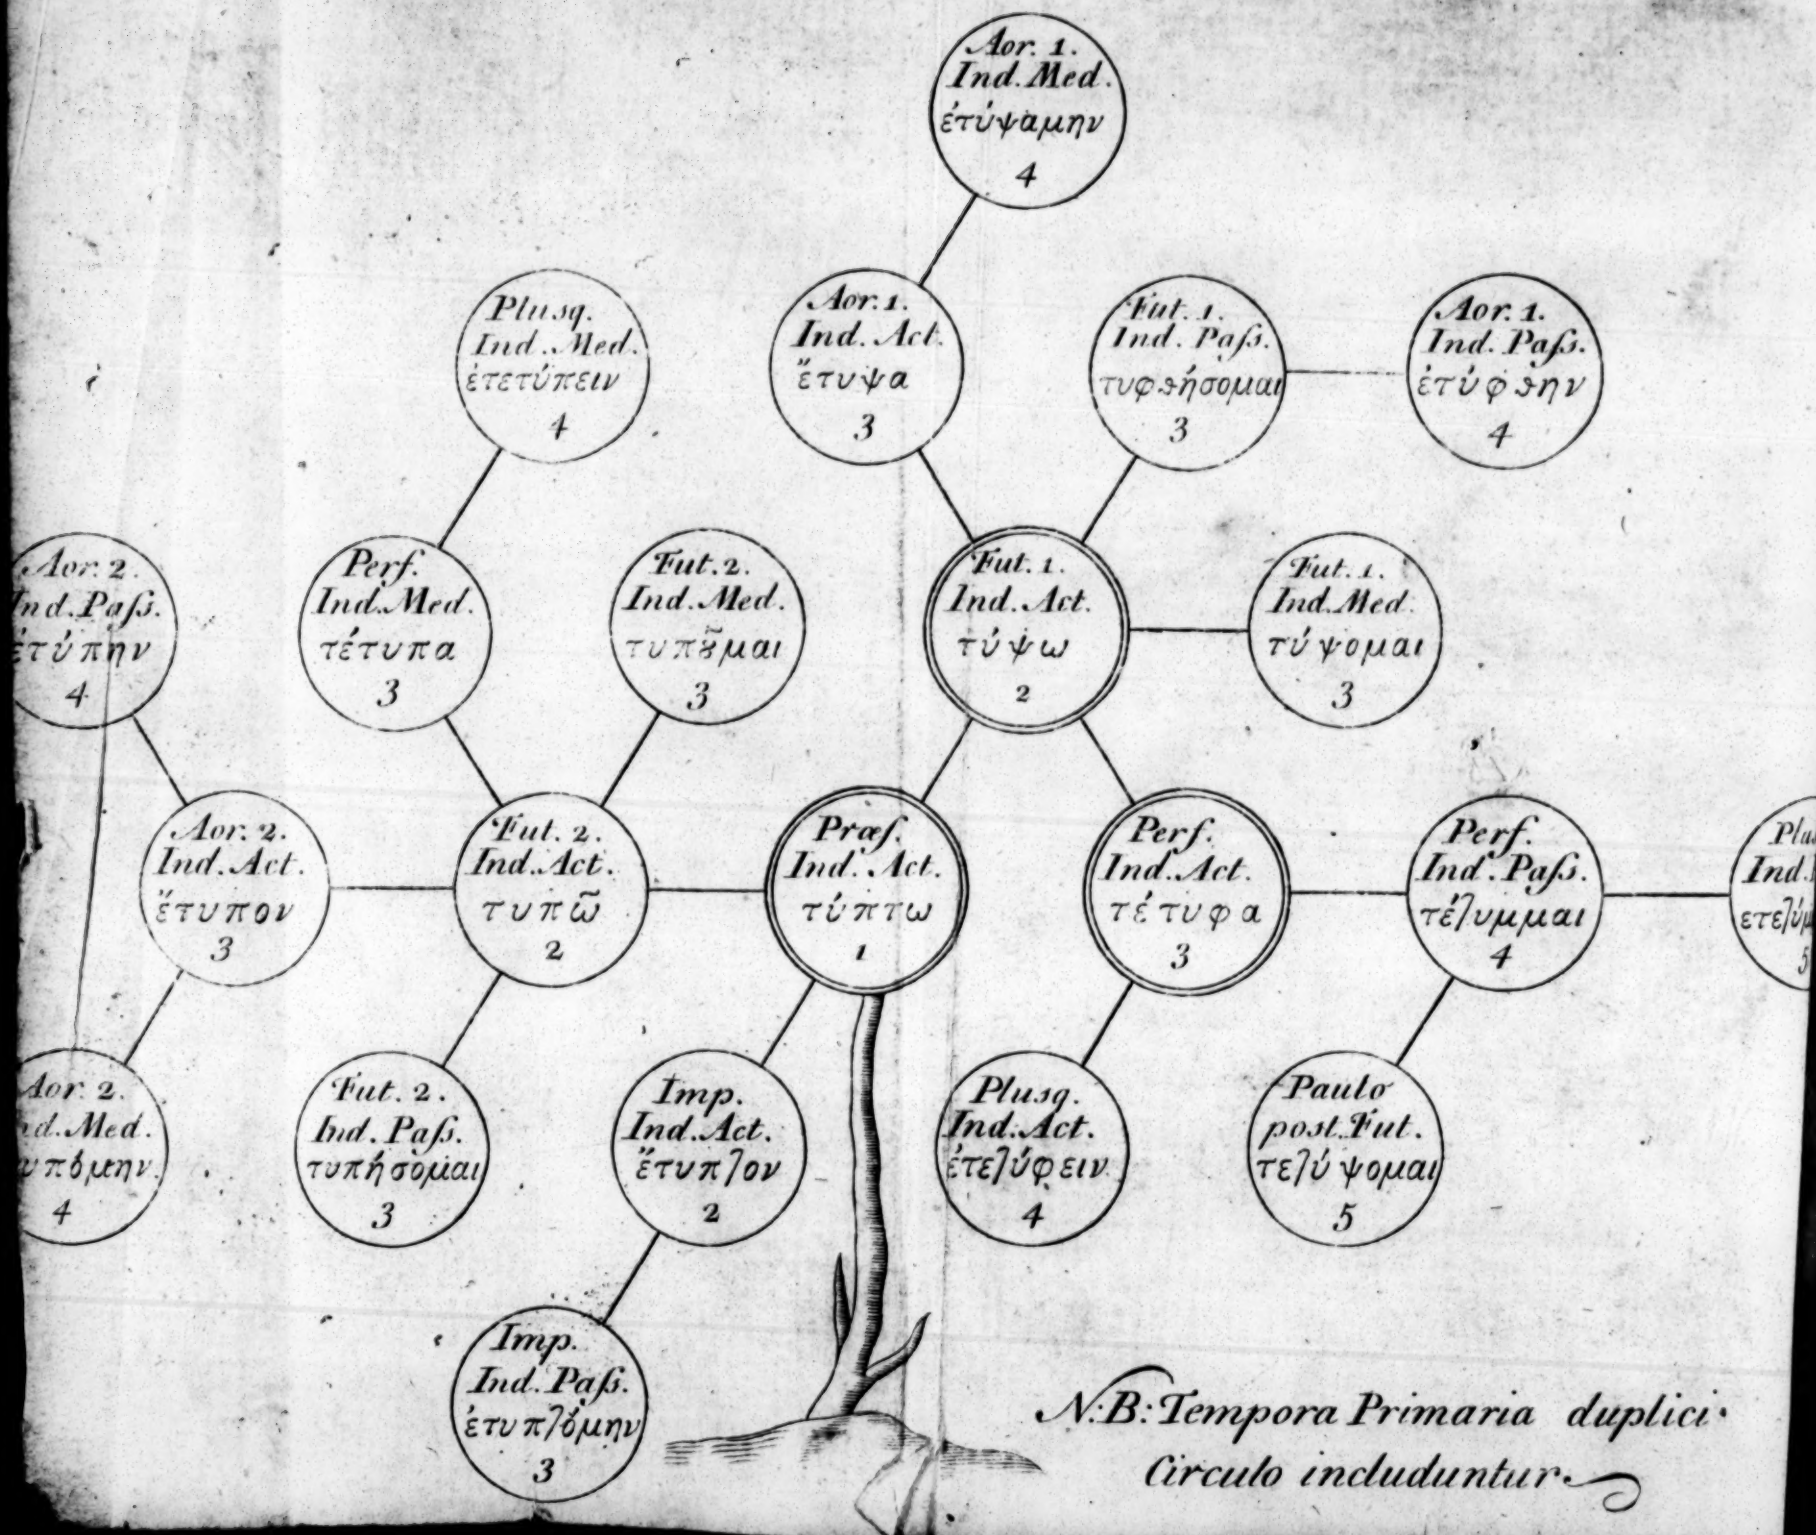 Aor. 1.
Ind. Med.
ἐτύψαμην
4
Plusq.
Ind. Med.
ἐτετύπειν
4
Aor. 1.
Ind. Act.
ἔτυψα
3
Fut. 1.
Ind. Paſs.
τυφϑήσομαι
3
Aor. 1.
Ind. Paſs.
ἐτύφϑην
4
Aor. 2.
Ind. Paſs.
ἐτύπην
4
Perf.
Ind. Med.
τέτυπα
3
Fut. 2.
Ind. Med.
τυπȣ͂μαι
3
Fut. 1.
Ind. Act.
τύψω
2
Fut. 1.
Ind. Med.
τύψομαι
3
Aor. 2.
Ind. Act.
ἔτυπον
3
Fut. 2.
Ind. Act.
τυπῶ
2
Præſ.
Ind. Act.
τύπτω
1
Perf.
Ind. Act.
τέτυφα
3
Perf.
Ind. Paſs.
τέτυμμαι
4
Ind.
5
Aor. 2.
Med.
4
Fut. 2.
Ind. Paſs.
τυπήσομαι
3
Imp.
Ind. Act.
ἔτυπτον
2
Plusq.
Ind. Act.
ἐτετύφειν
4
Paulo
post. Fut.
τετύψομαι
5
Imp.
Ind. Paſs.
ἐτυπτόμην
3
N:B: Tempora Primaria duplici
Circulo includuntur.